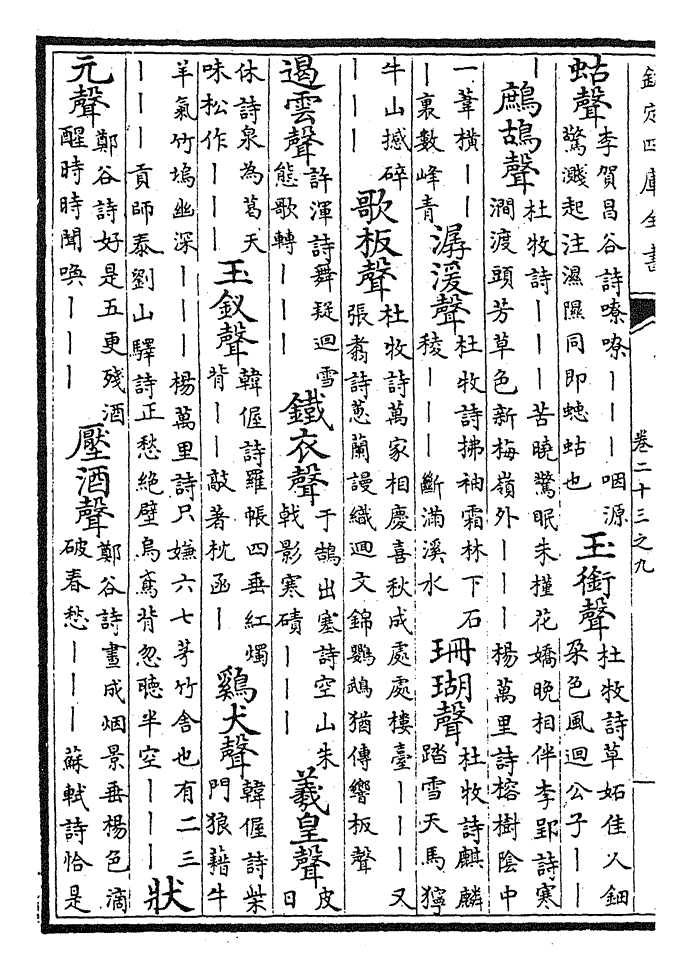 欽定四庫全書 卷二十三之九
蛄聲 李賀昌谷詩嘹嘹｜｜｜咽源驚濺起注濕隰同即蟪蛄也 玉銜聲 杜牧詩草妬佳人鈿朶色風迴公子｜｜
｜ 鷓鴣聲 杜牧詩｜｜｜苦曉驚眠朱槿花嬌晚相伴李郢詩寒澗渡頭芳草色新梅嶺外｜｜｜楊萬里詩榕樹陰中
一葦横｜｜｜裏數峰青 潺湲聲 杜牧詩拂袖霜林下石稜｜｜｜斷滿溪水 珊瑚聲 杜牧詩麒麟踏雪天馬獰
牛山撼碎｜｜｜ 歌板聲 杜牧詩萬家相慶喜秋成處處樓臺｜｜｜又張翥詩蕙蘭謾織迴文錦鸚鵡猶傳響板聲
遏雲聲 許渾詩舞疑迴雪態歌轉｜｜｜ 鐵衣聲 于鵠出塞詩空山朱戟影寒磧｜｜｜ 羲皇聲 皮日
休詩泉為葛天味松作｜｜｜ 玉釵聲 韓偓詩羅帳四垂紅燭背｜｜敲著枕函｜ 雞犬聲 韓偓詩柴門狼藉牛
羊氣竹塢幽深｜｜｜楊萬里詩只嫌六七茅竹舍也有二三｜｜｜貢師泰劉山驛詩正愁絶壁烏鳶背忽聽半空｜｜｜ 狀
元聲 鄭谷詩好是五更殘酒醒時時聞喚｜｜｜ 壓酒聲 鄭谷詩畫成烟景垂楊色滴破春愁｜｜｜蘇軾詩恰是